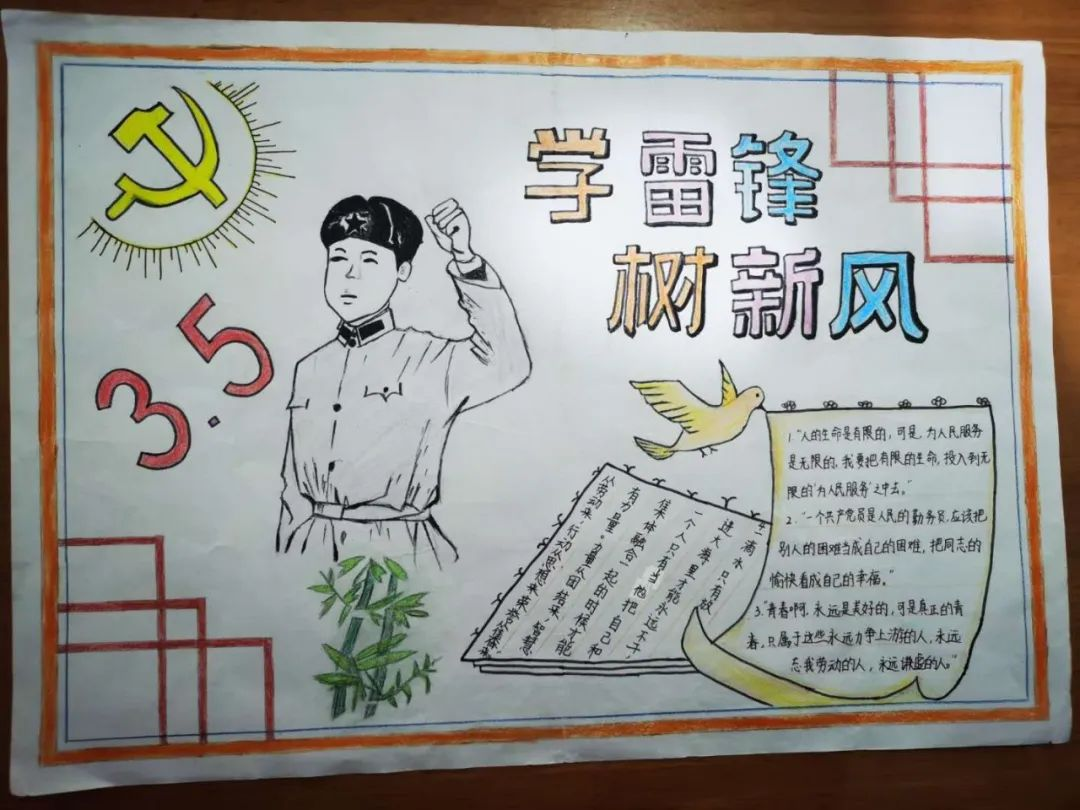 学雷锋
树新风
3.5
滴水只有放
进大海里才能永远不干,
一个人只有当他把自己和
集体融合一起的时候才能
有力量。力量从团结来,智慧
从劳动来,行动从思想来,荣誉从集体来
1."人的生命是有限的,可是,为人民服务
是无限的,我要把有限的生命,投入到无
限的"为人民服务"之中去。"
2."一个共产党员是人民的勤务员,应该把
别人的困难当成自己的困难,把同志的
愉快看成自己的幸福。"
3."青春啊,永远是美好的,可是真正的青
春,只属于这些永远力争上游的人,永远
忘我劳动的人,永远谦虚的人。"